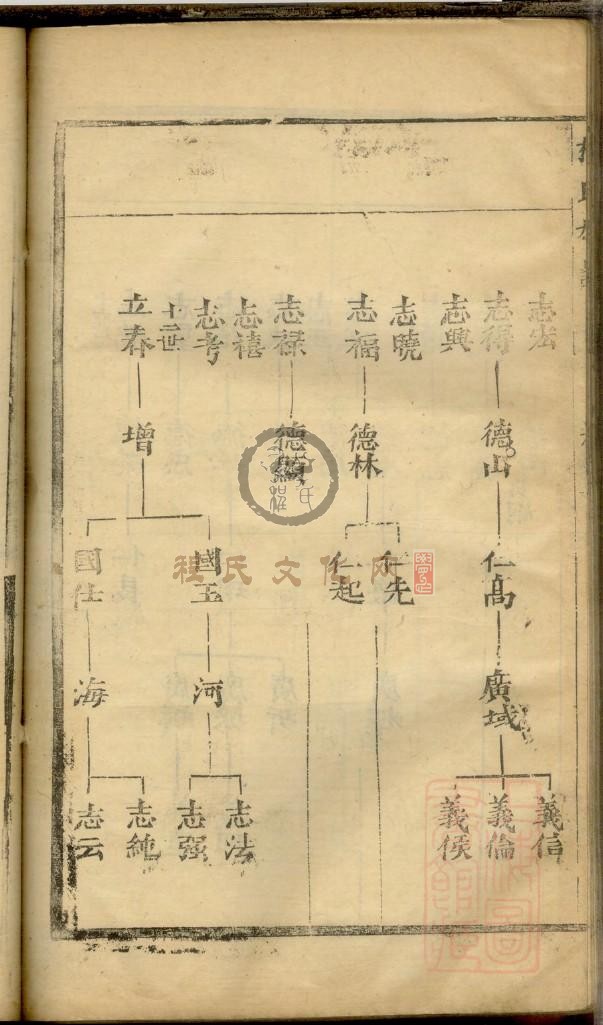 志宏
志得
志興
志曉
志福
志祿
志禧
志考
十二世
立春
德山
德林
增
仁高
仁先
仁起
國玉
國仕
廣域
河
海
義信
義倫
義侯
志法
志强
志純
志云
程氏文化网